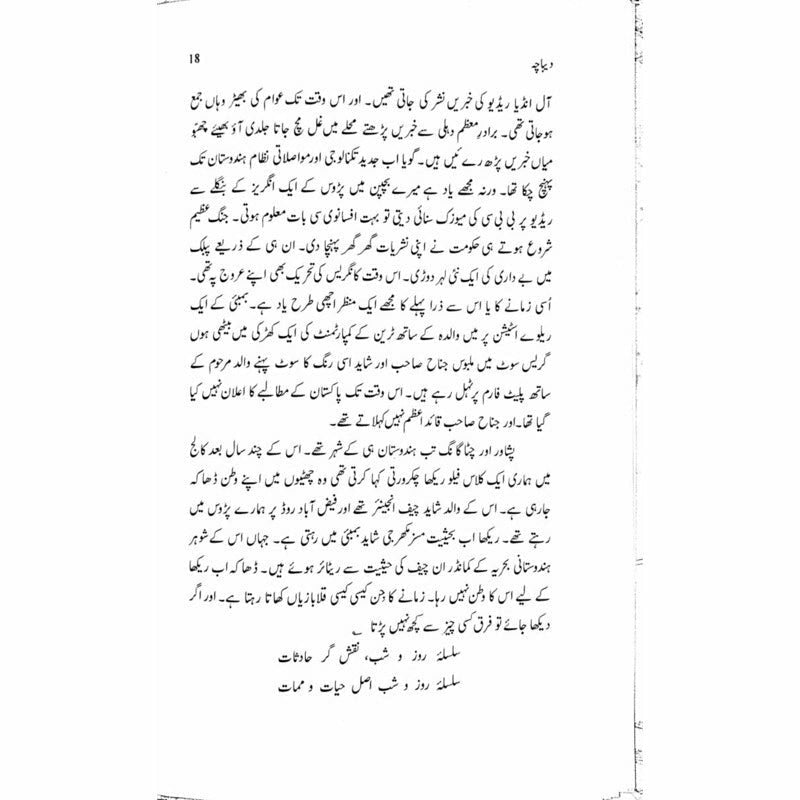 دیباچہ
18
آل انڈیا ریڈیو کی خبریں نشر کی جاتی تھیں۔ اور اس وقت تک عوام کی بھیڑ وہاں جمع
ہوجاتی تھی۔ برادرِ معظم دہلی سے خبریں پڑھتے محلے میں غل مچ جاتا جلدی آؤ بھیئے چھبّو
میاں خبریں پڑھ رے ئیں ہیں۔ گویا اب جدید تکنالوجی اور مواصلاتی نظام ہندوستان تک
پہنچ چکا تھا۔ ورنہ مجھے یاد ہے میرے بچپن میں پڑوس کے ایک انگریز کے بنگلے سے
ریڈیو پر بی بی سی کی میوزک سنائی دیتی تو بہت افسانوی سی بات معلوم ہوتی۔ جنگ عظیم
شروع ہوتے ہی حکومت نے اپنی نشریات گھر گھر پہنچا دی۔ ان ہی کے ذریعے پبلک
میں بے داری کی ایک نئی لہر دوڑی۔ اس وقت کانگریس کی تحریک بھی اپنے عروج پہ تھی۔
اُسی زمانے کا یا اس سے ذرا پہلے کا مجھے ایک منظر اچھی طرح یاد ہے۔ بمبئی کے ایک
ریلوے اسٹیشن پر میں والدہ کے ساتھ ٹرین کے کمپارٹمنٹ کی ایک کھڑکی میں بیٹھی ہوں
گریس سوٹ میں ملبوس جناح صاحب اور شاید اسی رنگ کا سوٹ پہنے والد مرحوم کے
ساتھ پلیٹ فارم پر ٹہل رہے ہیں۔ اس وقت تک پاکستان کے مطالبے کا اعلان نہیں کیا
گیا تھا۔ اور جناح صاحب قائد اعظم نہیں کہلاتے تھے۔
پشاور اور چٹاگانگ تب ہندوستان ہی کے شہر تھے۔ اس کے چند سال بعد کالج
میں ہماری ایک کلاس فیلو ریکھا چکرورتی کہا کرتی تھی وہ چھٹیوں میں اپنے وطن ڈھا کہ
جارہی ہے۔ اس کے والد شاید چیف انجینئر تھے اور فیض آباد روڈ پر ہمارے پڑوس میں
رہتے تھے۔ ریکھا اب بحیثیت مسز مکھرجی شاید بمبئی میں رہتی ہے۔ جہاں اس کے شوہر
ہندوستانی بحریہ کے کمانڈر ان چیف کی حیثیت سے ریٹائر ہوئے ہیں۔ ڈھا کہ اب ریکھا
کے لیے اس کا وطن نہیں رہا۔ زمانے کا جِن کیسی کیسی قلابازیاں کھاتا رہتا ہے۔ اور اگر
دیکھا جائے تو فرق کسی چیز سے کچھ نہیں پڑتا ؎
سلسلۂ روز و شب، نقش گر حادثات
سلسلۂ روز و شب اصل حیات و ممات